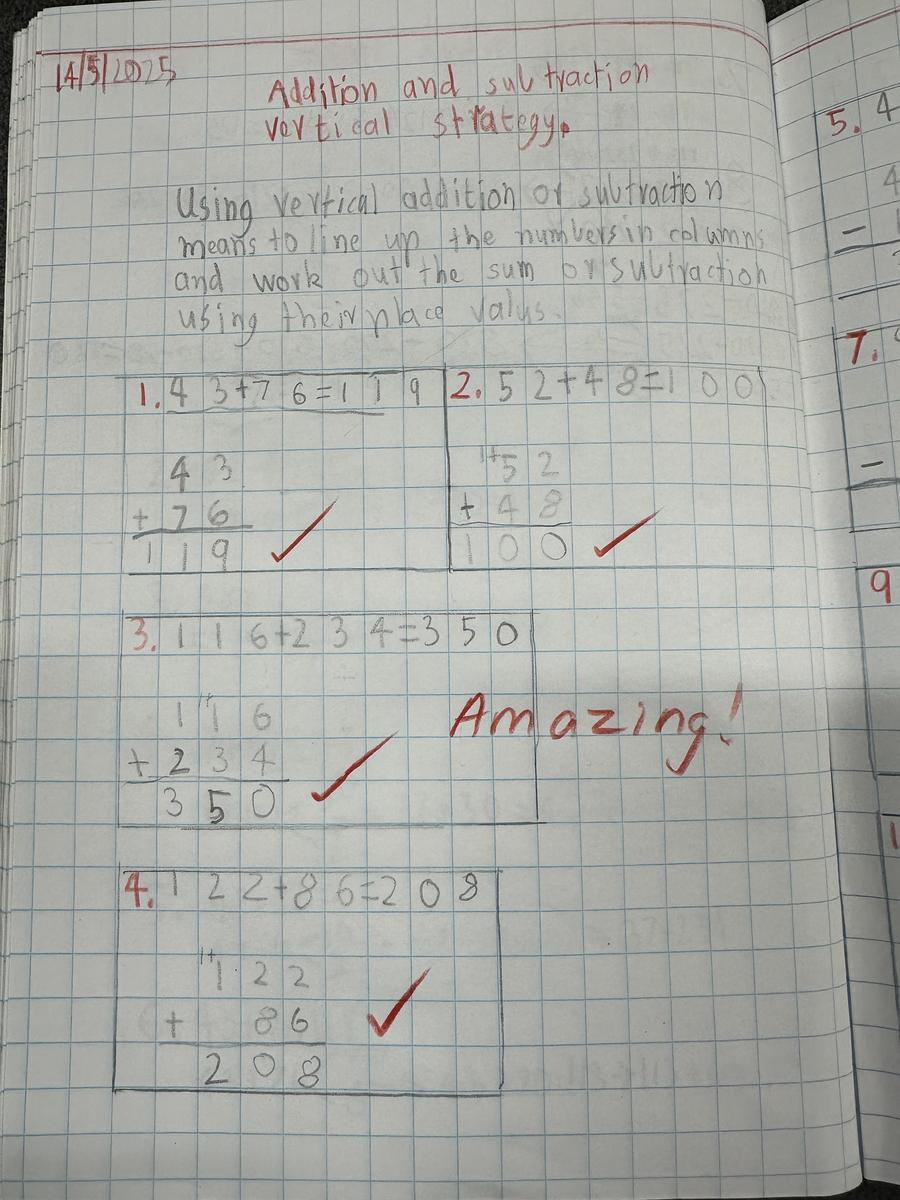 14/5/2025
Addition and subtraction
vertical strategy.
Using vertical addition or subtraction
means to line up the numbers in columns
and work out the sum or subtraction
using their place valus.
1. 43+76=119
43
+ 76
119
2. 52+48=100
1+52
+ 48
100
3. 116+234=350
11+16
+ 234
350
Amazing!
4. 122+86=208
1+122
+ 86
208
5. 4
4
–
7.
–
9
1